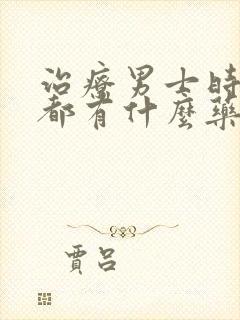 治療男士時
都有什麼藥
賈呂